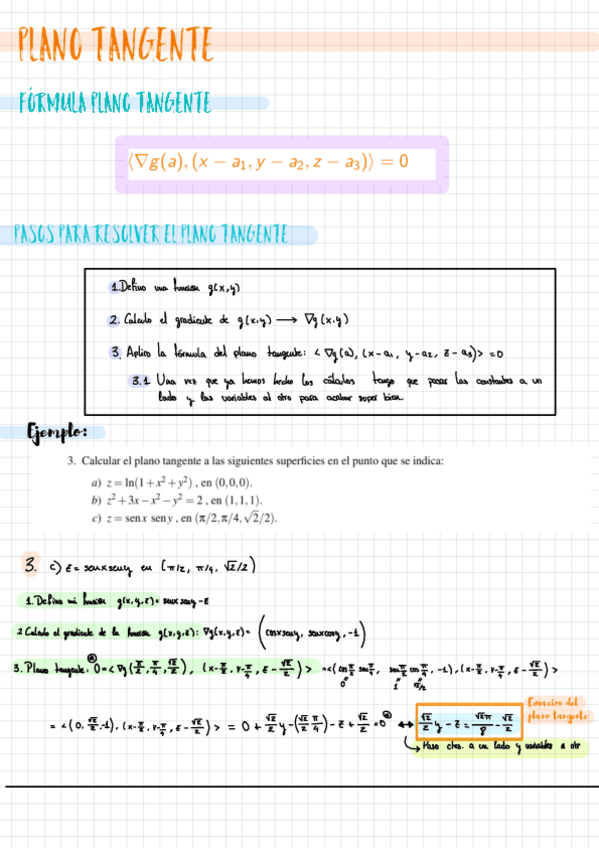 PLANO TANGENTE
FÓRMULA PLANO TANGENTE
⟨∇g(a), (x − a₁, y − a₂, z − a₃)⟩ = 0
PASOS PARA RESOLVER EL PLANO TANGENTE
1. Defino una función g(x,y)
2. Calculo el gradiente de g(x,y) ⟶ ∇g(x,y)
3. Aplico la fórmula del plano tangente: < ∇g(a), (x-a₁, y-a₂, z-a₃)> =0
3.1 Una vez que ya hemos hecho los cálculos tengo que pasar las constantes a un
lado y las variables al otro para acabar super bien.
Ejemplo:
3. Calcular el plano tangente a las siguientes superficies en el punto que se indica:
a) z = ln(1+x²+y²) , en (0,0,0).
b) z²+3x−x²−y² = 2 , en (1,1,1).
c) z = senx seny , en (π/2,π/4,√2/2).
3. c) z = senxseny en (π/2, π/4, √2/2)
1. Defino mi función g(x,y,z)= senxseny-z
2 Calculo el gradiente de la función g(x,y,z): ∇g(x,y,z)= (cosxseny, senxcosy, -1)
3. Plano tangente: 0=< ∇g(π/2, π/4, √2/2), (x-π/2, y-π/4, z-√2/2)> =<(cos π/2 sen π/4, sen π/2 cos π/4, -1), (x-π/2, y-π/4, z-√2/2)>
0 1 √2/2
= <(0, √2/2, -1), (x-π/2, y-π/4, z-√2/2)> = 0 + √2/2 y - (√2/2 π/4) - z + √2/2 = 0 ⟷ √2/2 y - z = √2π/8 - √2/2
Ecuación del
plano tangente
Paso ctes. a un lado y variables a otr